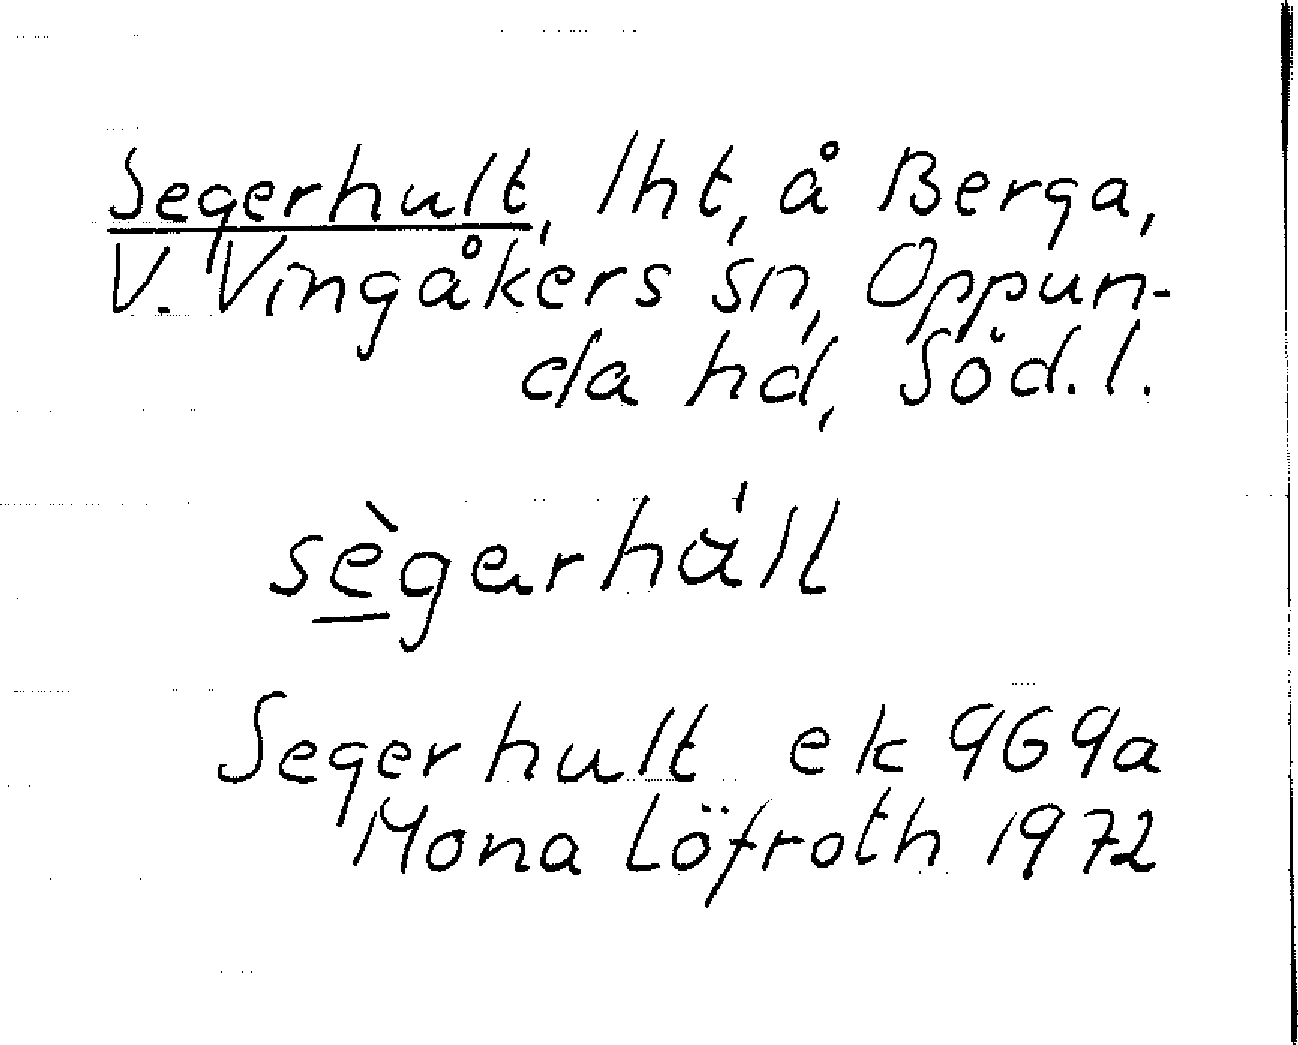 Segerhult, lht, å Berga,
V. Vingåkers sn, Oppun-
da hd, Söd.l.
sègerháll
Segerhult ek 9G9a
Mona Löfroth 1972